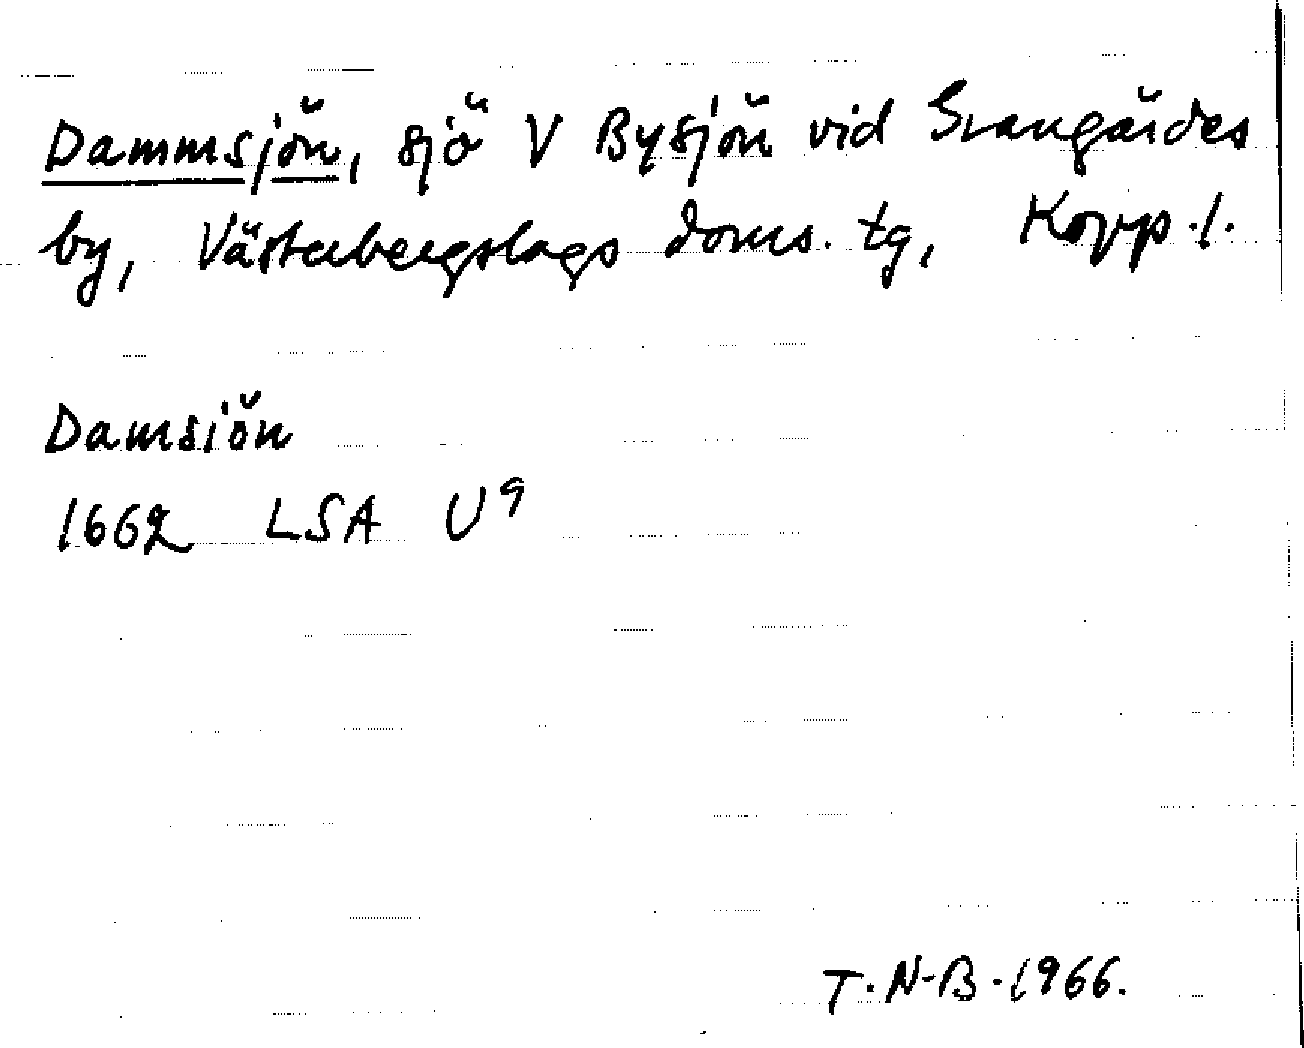 Dammsjön, sjö V Bysjön vid Grangärdes
by, Västerbergslags doms. tg, Kopp.l.
Damsiön
1662 LSA U9
T.N-B.1966.